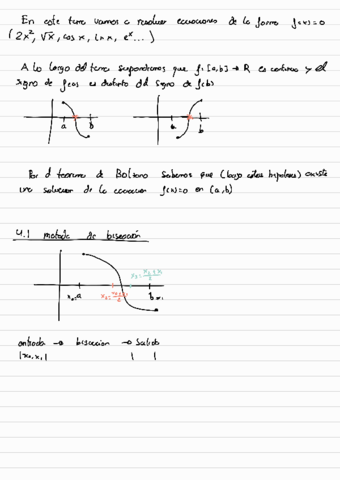 En este tema vamos a resolver ecuaciones de la forma f(x)=0
(2x², √x, cos x, ln x, eˣ...)
A lo largo del tema supondremos que f:[a,b]→R es continua y el
signo de f(a) es distinto del signo de f(b)
a b
a b
Por el teorema de Bolzano sabemos que (bajo estas hipótesis) existe
una solución de la ecuación f(x)=0 en (a,b)
4.1 metodo de bisección
x₀=a
b=x₁
entrada → biseccion → salida
|x₀,x₁| | |